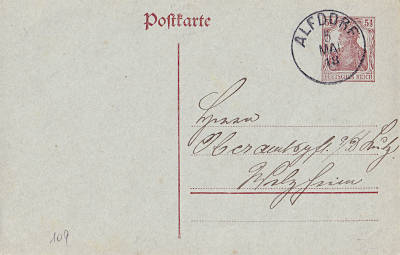 Postkarte
ALFDORF
5
MAI
18
DEUTSCHES REICH
Herrn
Oberamtspfl.
Welzheim
109